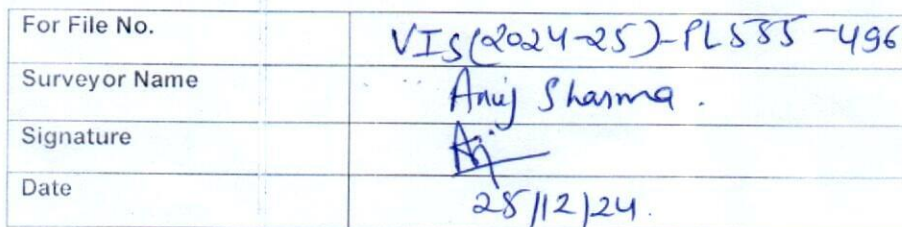 For File No. VIS(2024-25)-PL555-496
Surveyor Name Anuj Sharma.
Signature
Date 25/12/24.